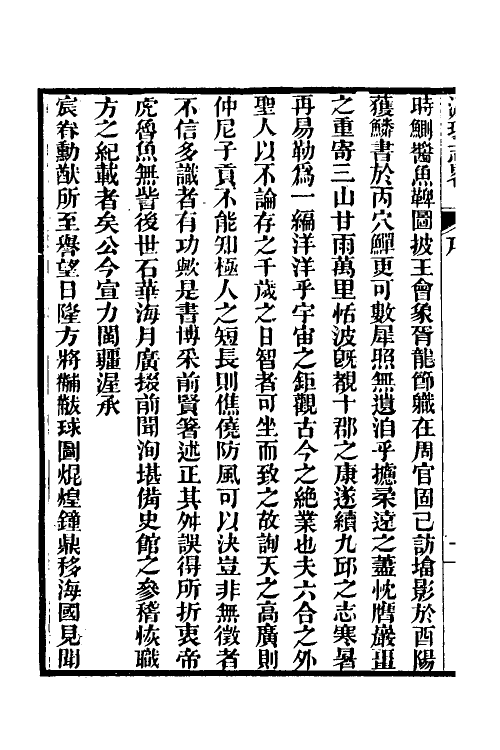 時鰂醬魚鞞圖披王會象胥龍節職在周官固已訪墖影於酉陽
獲鱗書於丙穴鱓更可數犀照無遺洎乎擴柔遠之藎忱膺嚴畺
之重寄三山甘雨萬里恬波旣覩十郡之康遂續九邱之志寒暑
再易勒爲一編洋洋乎宇宙之鉅觀古今之絕業也夫六合之外
聖人以不論存之千歲之日智者可坐而致之故詢天之高廣則
仲尼子貢不能知極人之短長則僬僥防風可以決豈非無徵者
不信多識者有功歟是書博采前賢箸述正其舛誤得所折衷帝
虎魯魚無訾後世石華海月廣掇前聞洵堪備史館之參稽恢職
方之紀載者矣公今宣力閩疆渥承
宸眷勳猷所至譽望日隆方將黼黻球圖焜煌鐘鼎移海國見聞